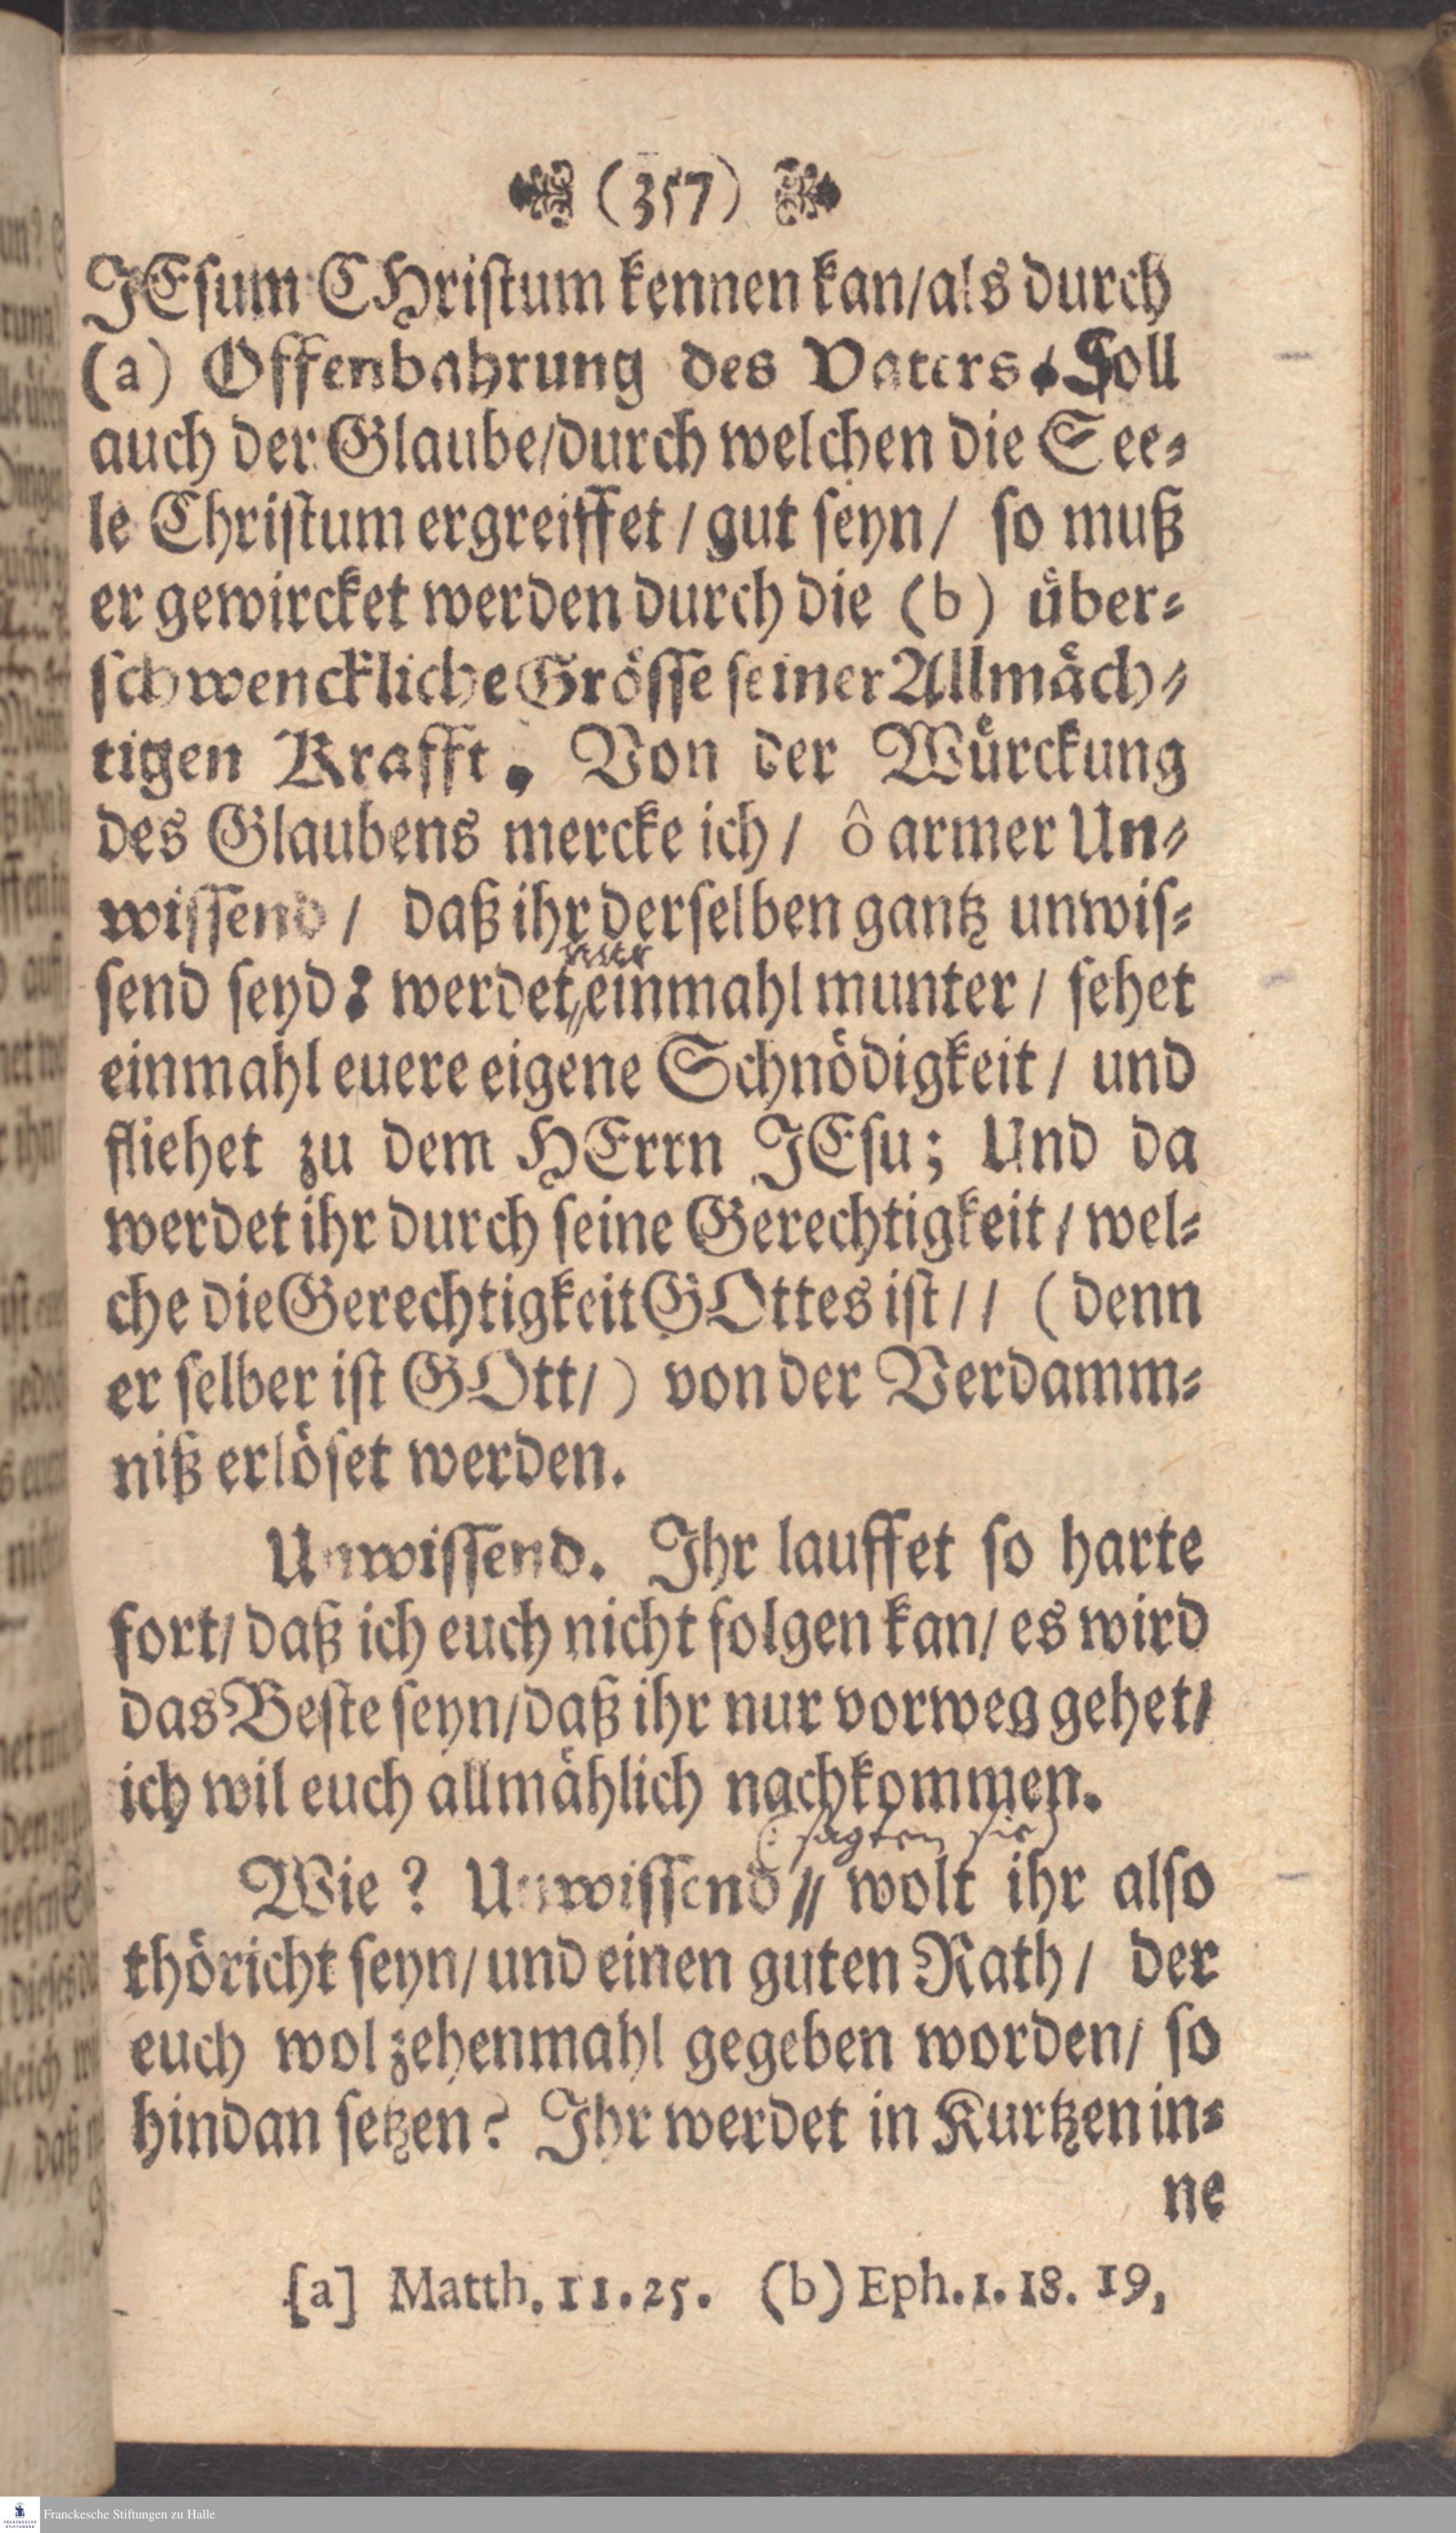 (357)
JEsum CHristum kennen kan/als durch
(a) Offenbahrung des Vaters. Soll
auch der Glaube/durch welchen die See⸗
le Christum ergreiffet / gut seyn / so muß
er gewircket werden durch die (b) uͤber⸗
schwenckliche Groͤsse seiner Allmaͤch⸗
tigen Krafft. Von der Wuͤrckung
des Glaubens mercke ich / ô armer Un⸗
wissend / daß ihr derselben gantz unwis⸗
nur
send seyd: werdet,, einmahl munter / sehet
einmahl euere eigene Schnoͤdigkeit / und
fliehet zu dem HErrn JEsu; Und da
werdet ihr durch seine Gerechtigkeit / wel⸗
che die Gerechtigkeit GOttes ist / / (denn
er selber ist GOtt/) von der Verdamm⸗
niß erloͤset werden.
Unwissend. Ihr lauffet so harte
fort/ daß ich euch nicht folgen kan/ es wird
das Beste seyn/daß ihr nur vorweg gehet/
ich wil euch allmaͤhlich nachkommen.
(: sagten sie)
Wie? Unwissend // wolt ihr also
thoͤricht seyn/ und einen guten Rath / der
euch wol zehenmahl gegeben worden/ so
hindan setzen? Ihr werdet in Kurtzen in⸗
ne
[a] Matth. 11. 25. (b) Eph. 1. 18. 19,
Franckesche Stiftungen zu Halle